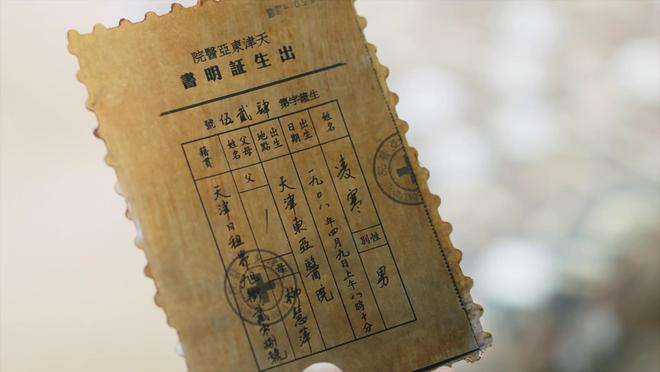 天津東亞醫院
出生証明書
生證字第肆貳伍號
姓名
凌寒
性別
男
出生日期
一九〇八年四月九日上午八時十分
出生地點
天津東亞醫院
父母姓名
父
母
柳慧萍
籍貫
天津日租界旭街貳號